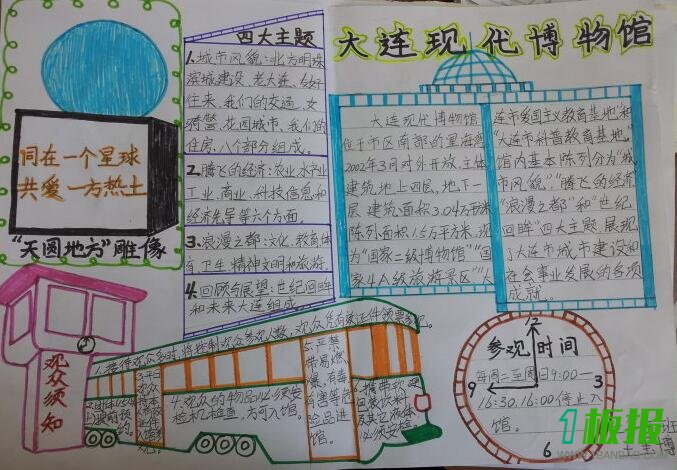 大连现代博物馆
四大主题
1.城市风貌:北方明珠
滨城建设、老大连、
往来、我们的交通、女
骑警、花园城市、我们的
住房、八个部分组成。
2.腾飞的经济:农业、水产业
工业、商业、科技信息和
经济先导等六个方面。
3.浪漫之都:文化、教育体
育、卫生、精神文明和旅游
4.回顾与展望:世纪回眸
和未来大连组成
同在一个星球
共爱一方热土
“天圆地方”雕像
大连现代博物馆
位于市区南部的星海湾
2002年3月对外开放,主体
建筑地上四层,地下一
层,建筑面积3.04万平米
陈列面积1.6万平方米,现
为“国家二级博物馆”“国
家4A级旅游景区”“大
连市爱国主义教育基地”和
“大连市科普教育基地。”
馆内基本陈列分为“城
市风貌”“腾飞的经济”
“浪漫之都”和“世纪
回眸”四大主题,展现
了大连市城市建设和
社会事业发展的各项
成就。
观众须知
4.观众的物品必须安
检机检查,方可入
馆。
5.严禁
带易燃
爆、有毒
有害等危
险品进
馆。
6.携带软、硬
参观时间
每周二至周日9:00—
16:30,16:00停止入
馆。
9
3
6
1板报
WWW.1BANBAO.COM